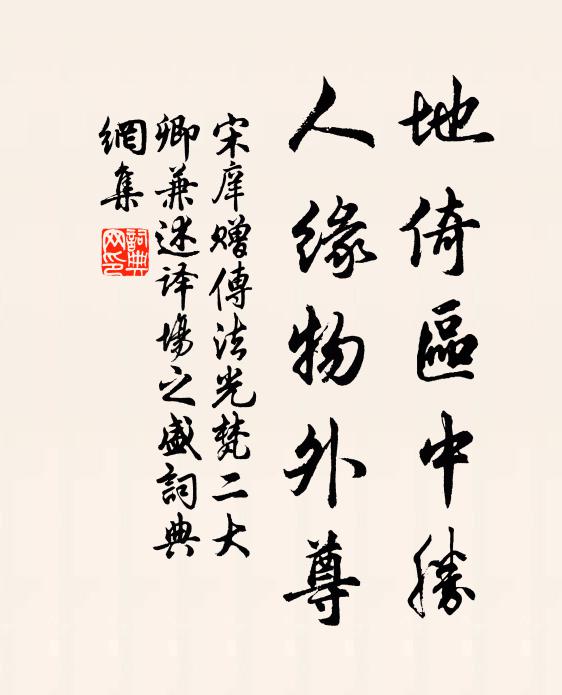 地倚區中勝
人緣物外尊
宋庠赠傳法光梵二大
卿兼述译場之盛詞典
網集
詞典
网印